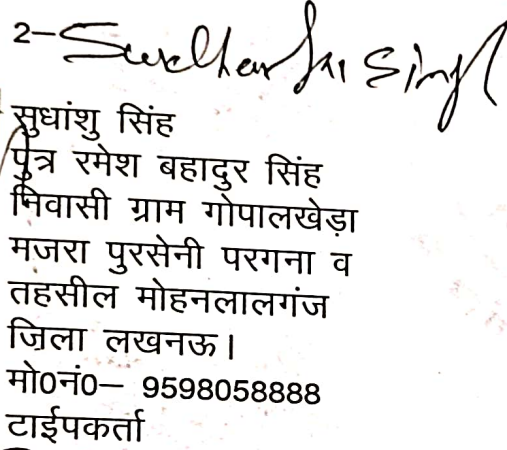 2- Sudhanshu Singh
सुधांशु सिंह
पुत्र रमेश बहादुर सिंह
निवासी ग्राम गोपालखेड़ा
मजरा पुरसेनी परगना व
तहसील मोहनलालगंज
जिला लखनऊ।
मो0नं0– 9598058888
टाईपकर्ता